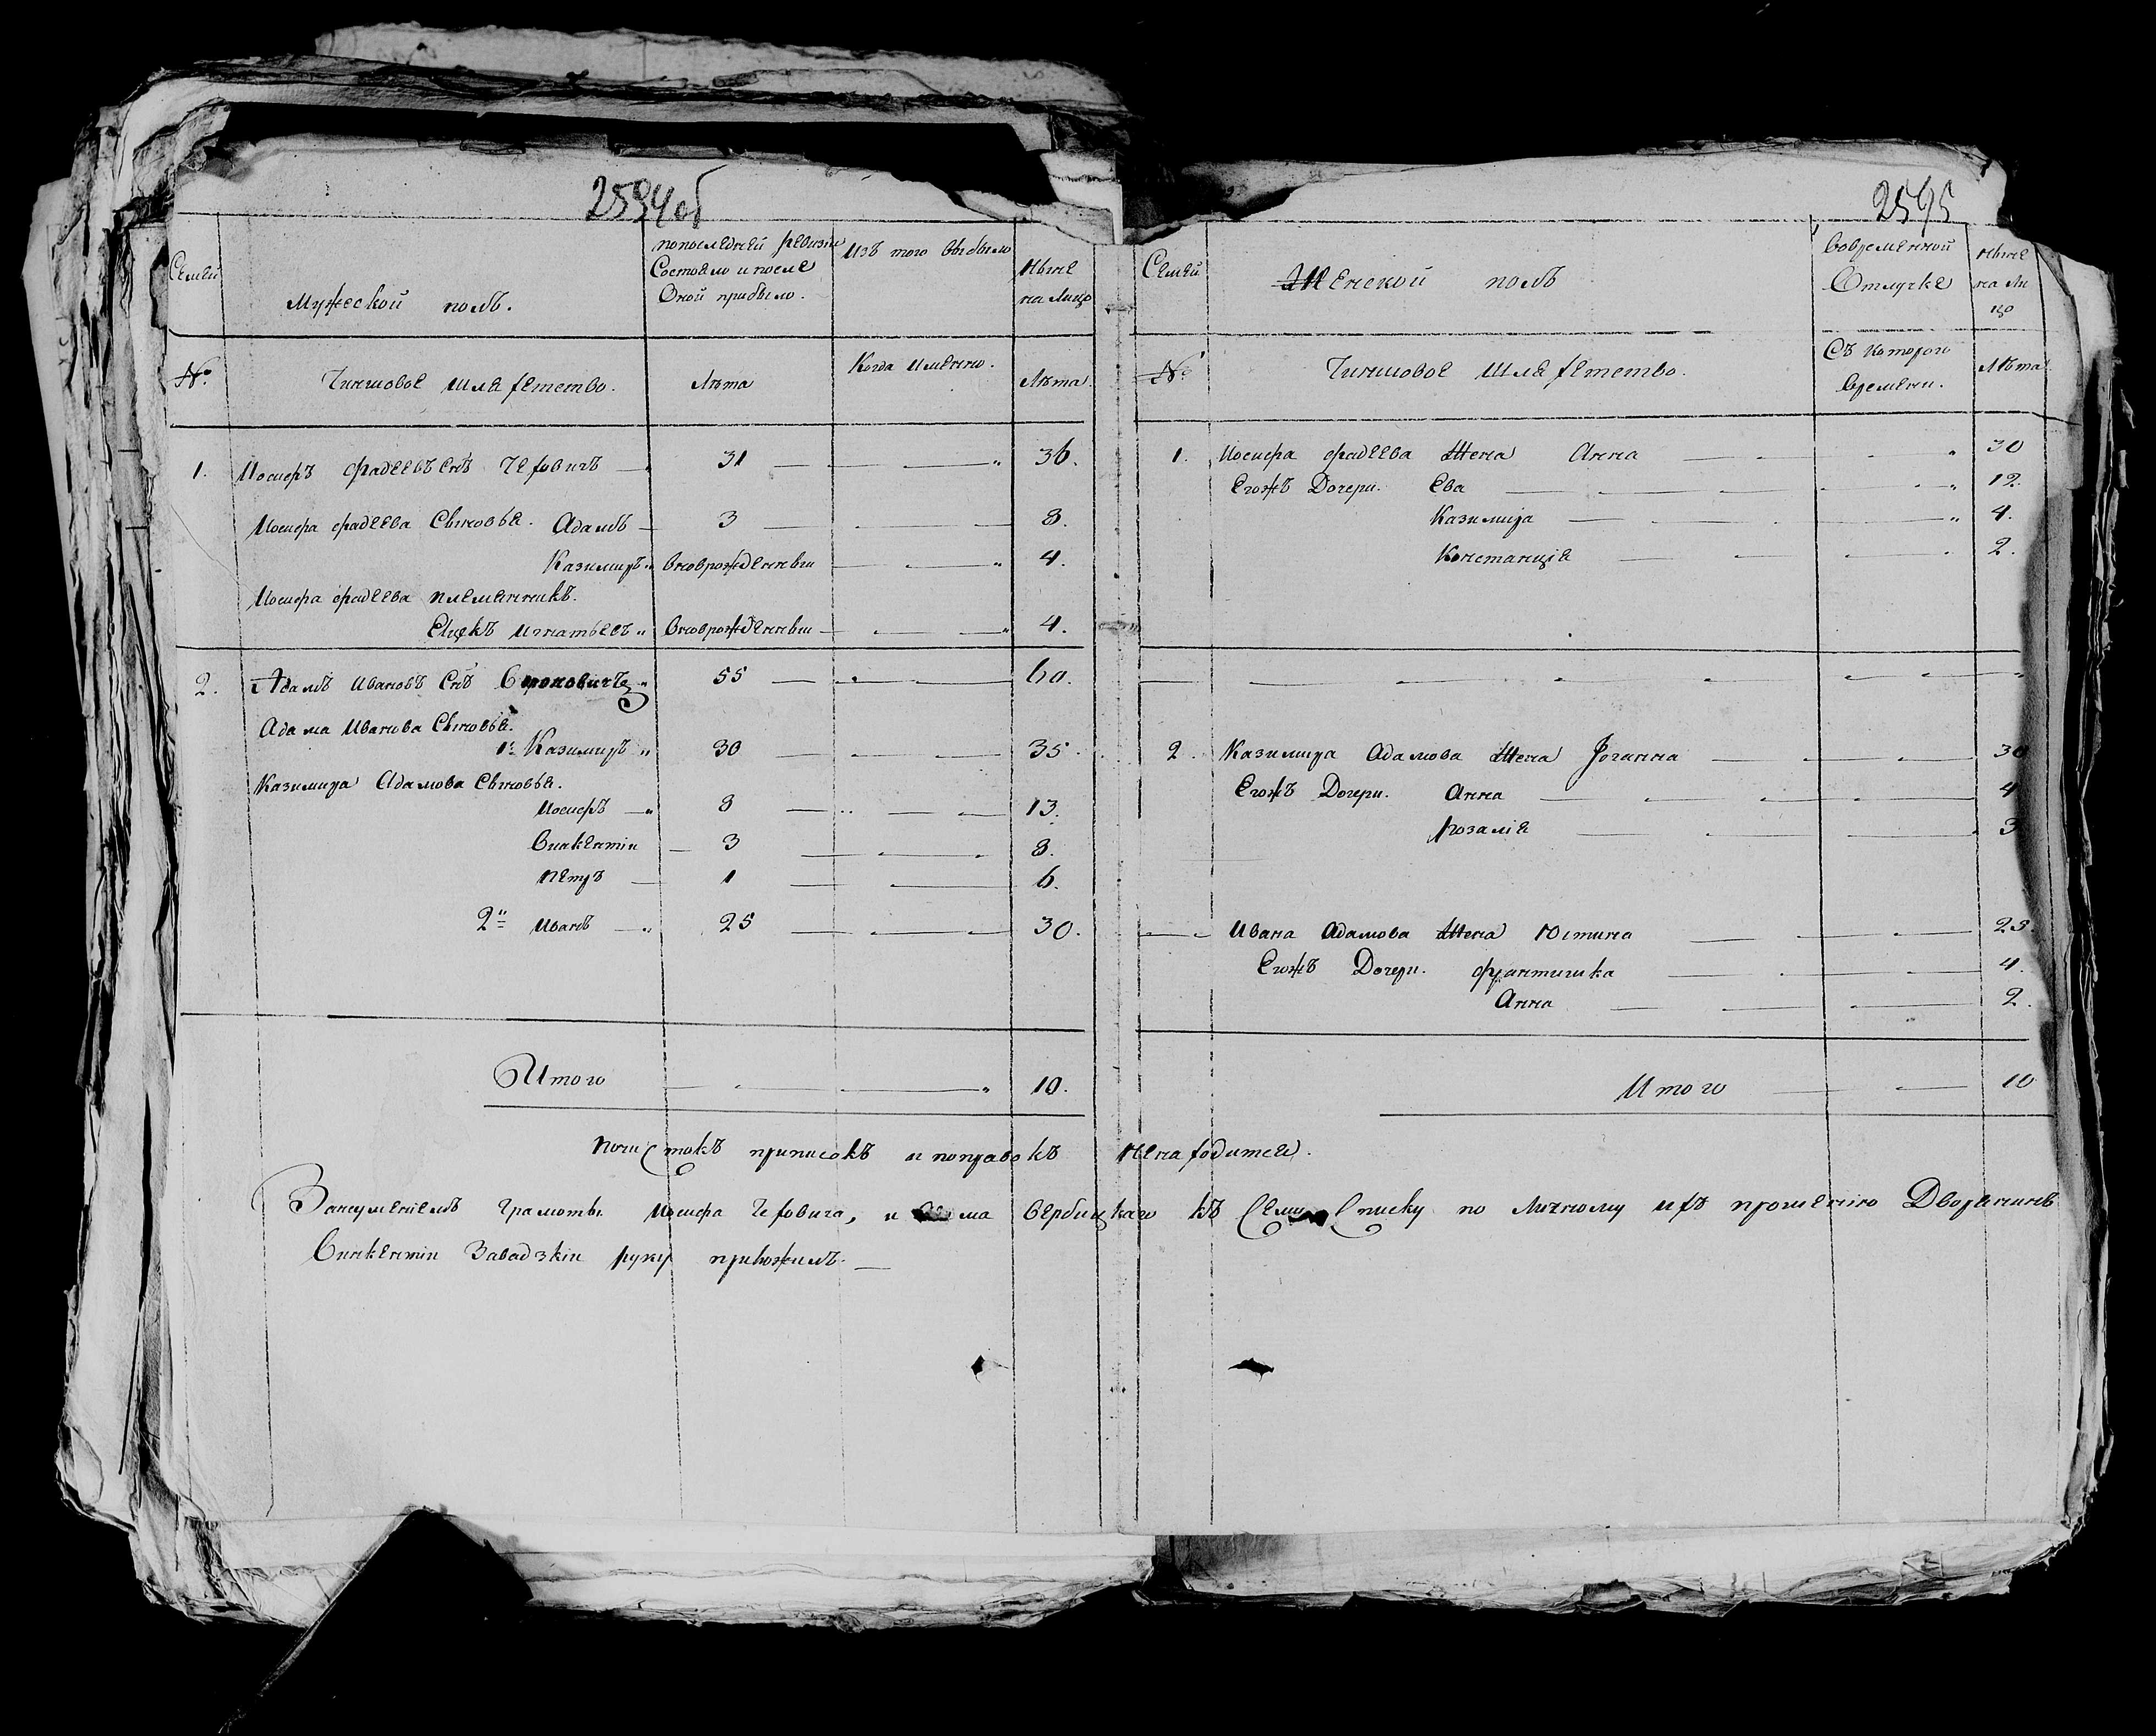 2594об
Семьи
Мужеской полъ.
попоследней ревизіи
Состояло и после
Оной прибыло.
Изъ того выбыло
Ныне
на Лицо
№
Чиншовое шляхетство.
Лѣта
Когда имянно.
Лѣта.
1. Иосифъ фадеевъ Снъ Чеховичъ 31 36.
Иосифа фадеева Сыновья. Адамъ 3 8.
Казимиръ вновь рожденный 4.
Иосифа фадеева племянникъ.
Игнатьевъ вновь рожденный 4.
2. Адамъ Ивановъ Снъ 55 60.
Адама Иванова Сыновья.
1й Казимиръ 30 35.
Казимира Адамова Сыновья.
Иосифъ 8 13.
Викентій 3 8.
Петръ 1 6.
2й Иванъ 25 30.
Итого 10.
2595
Семьи
Женской полъ
Вовременной
Отлучке
Ныне
на Ли
цо
№
Чиншовое шляхетство.
Съ котораго
Времени.
Лѣта
1. Иосифа фадеева Жена Анна 30
Егожъ Дочери. Ева 12.
Казимира 4.
Констанція 2.
2 Казимира Адамова Жена Іоганна 30
Егожъ Дочери. Анна 4
Розалія 3
Ивана Адамова Жена Юстина 25.
Егожъ Дочери. франтишка 4.
Анна 2.
Итого 10
почистокъ приписокъ и поправокъ ненаходится.
Занеумениемъ грамоты Иосифа Чеховича, и Вербицкаго къ Списку по Личному ихъ прошенію Дворянинъ
Викентій Завадзкій руку приложилъ.